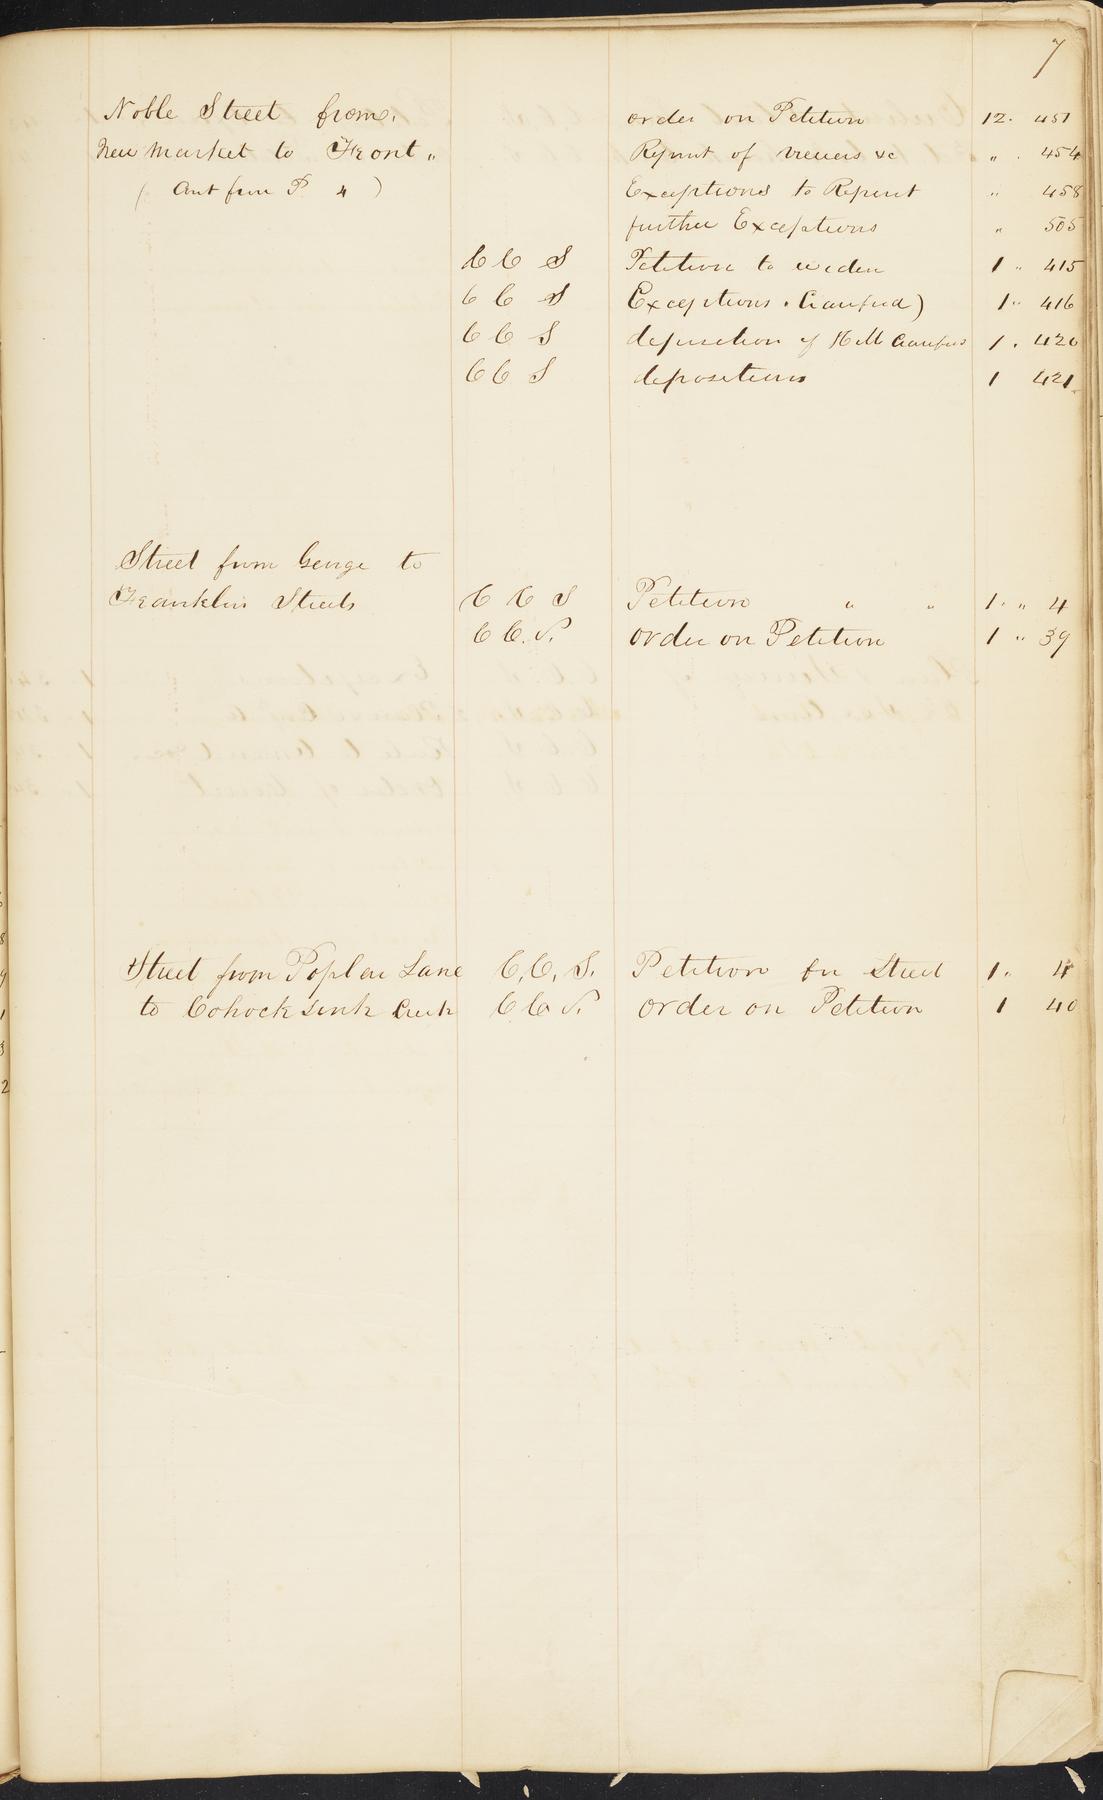 7
Noble Street from order on Petition 12. 451
New Market to Front " Report of viewers &c " . 454
( Cont from P 4 ) Exceptions to Report " 458
further Exceptions " 505
C C S Petition to widen 1 " 415
C C S Exceptions . Craufurd ) 1 " 416
C C S deposition of M Craufurd 1 . 420
C C S depositions 1 421
Street from George to
Franklin Streets C C S Petition " " 1 . " 4
C C. S. order on Petition 1 " 39
Street from Poplar Lane C, C, S. Petition for Street 1 . 4
to Cohocksink Creek C C S. order on Petition 1 40